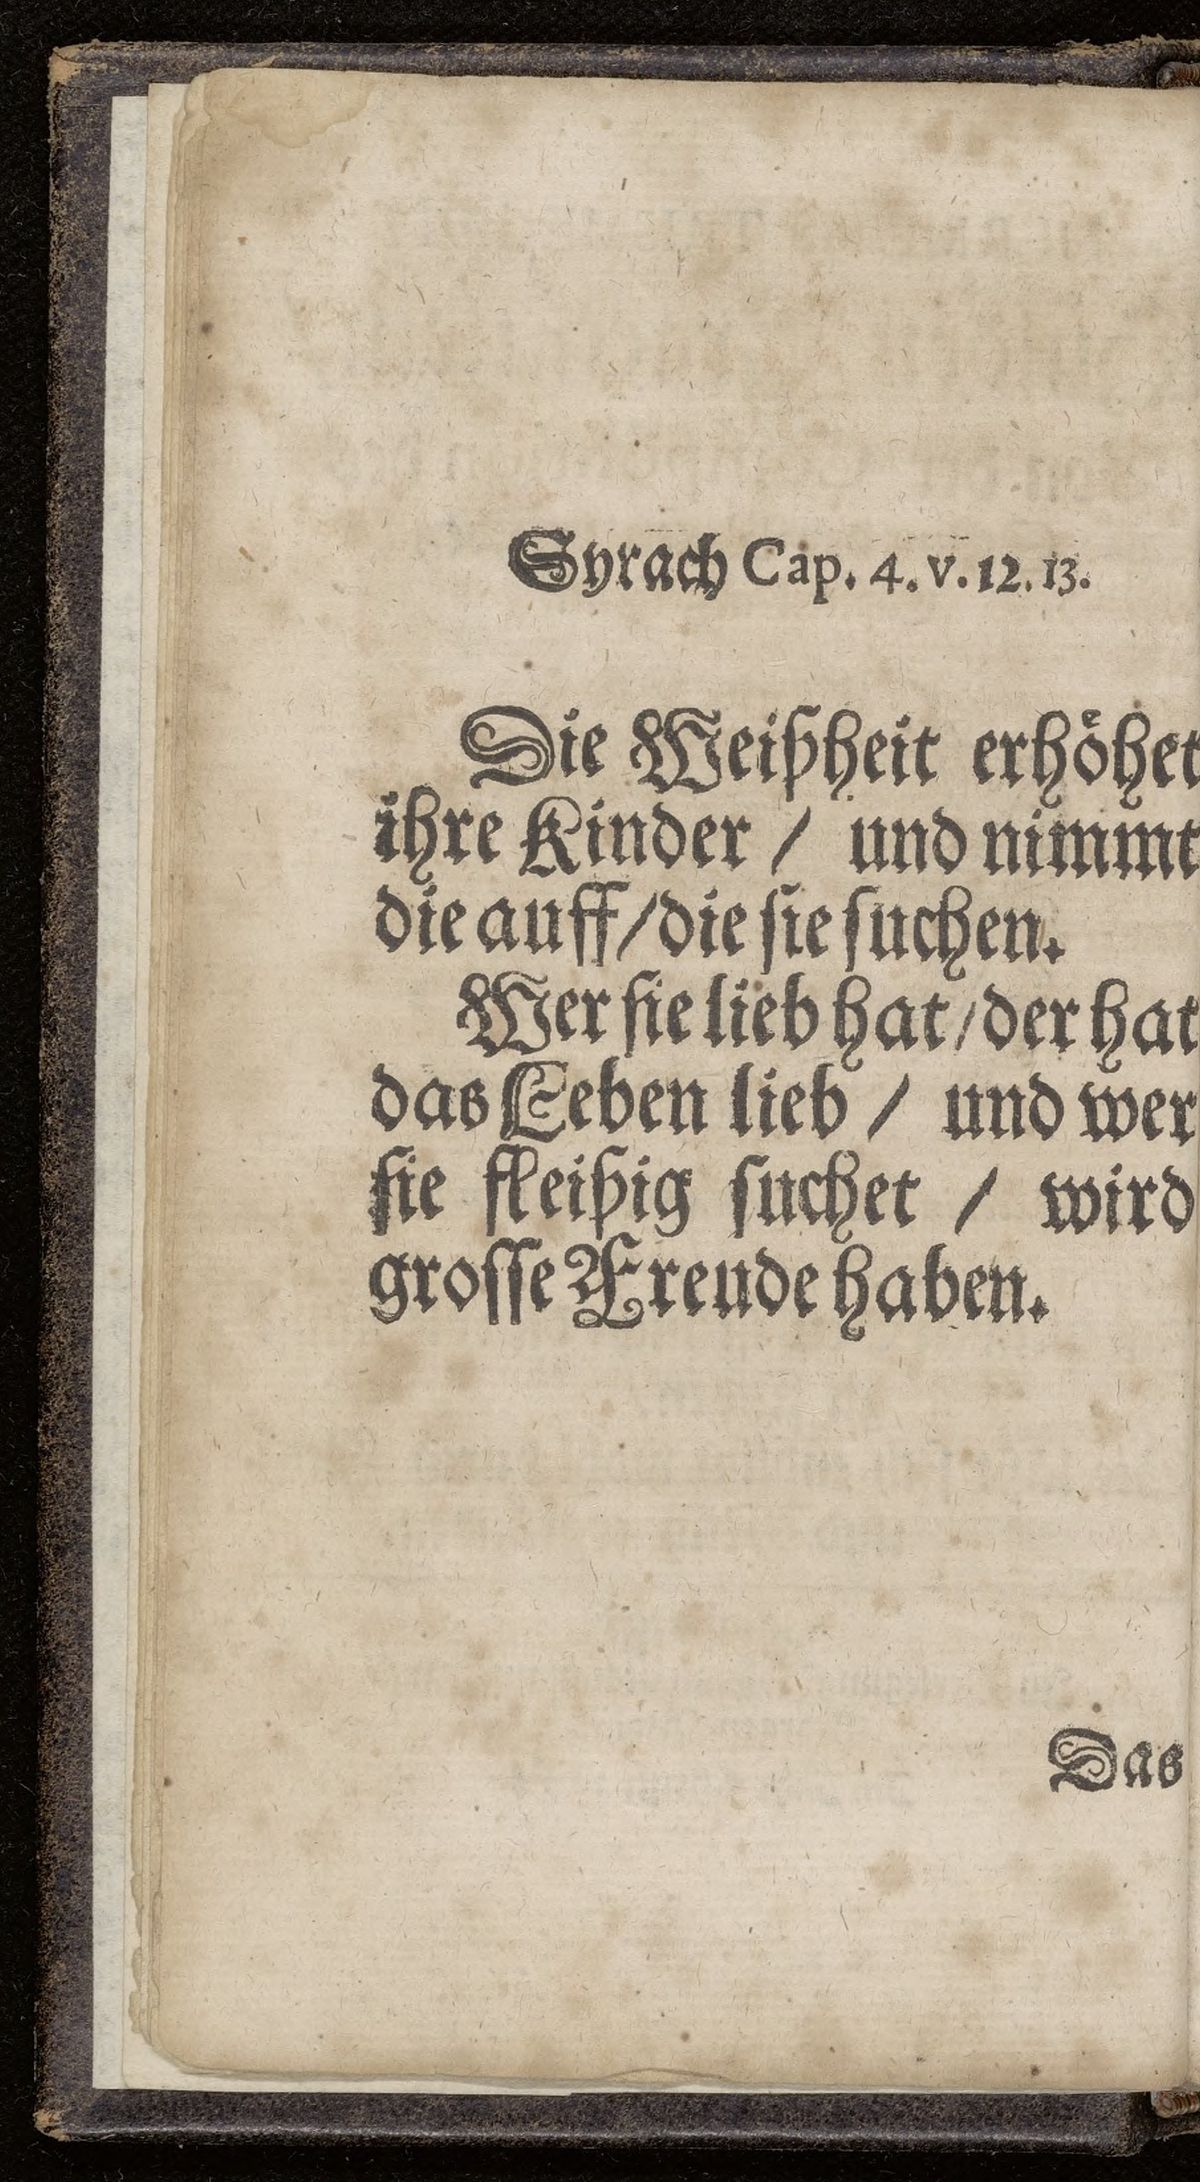 Syrach Cap. 4. v. 12. 13.
Die Weißheit erhöhet
ihre Kinder / und nimmt
die auff/die sie suchen.
Wer sie lieb hat/der hat
das Leben lieb / und wer
sie fleißig suchet / wird
grosse Freude haben.
Das